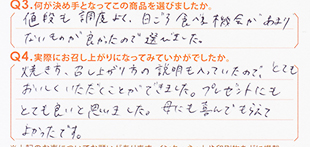 Q3.何が決め手となってこの商品を選びましたか。
値段も調度よく、日ごろ食べる機会があまり
ないものが良かったので選びました。
Q4.実際にお召し上がりになってみていかがでしたか。
焼き方、召し上がり方の説明も入っていたので、とても
おいしくいただくことができました。プレゼントにも
とても良いと思いました。母にも喜んでもらえて
よかったです。